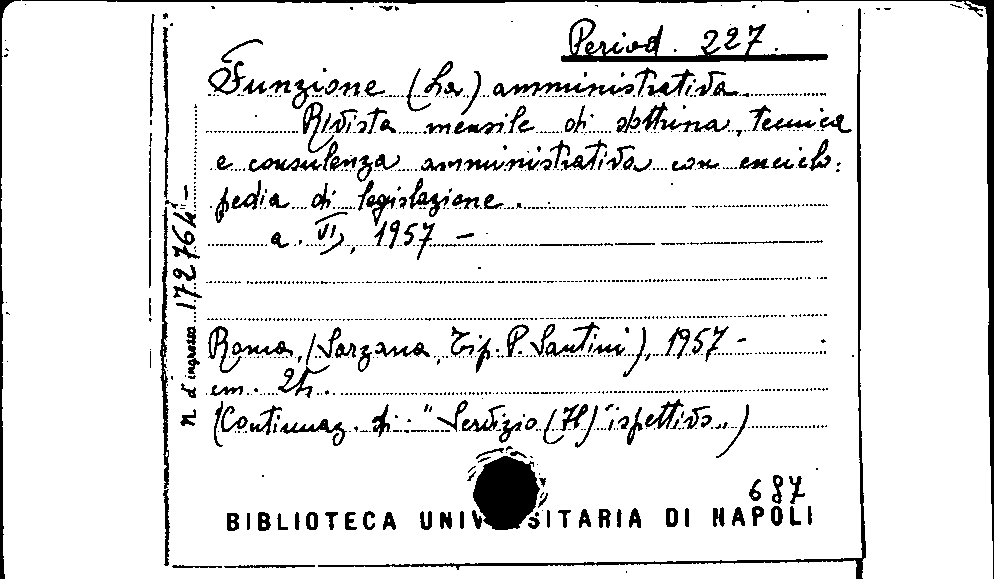 Period. 227.
Funzione (La) amministrativa.
Rivista mensile di dottrina, tecnica
e consulenza amministrativa con enciclo-
pedia di legislazione.
a. VI, 1957 -
n. d'ingresso 172764 -
Roma, (Sarzana, Tip. P. Santini), 1957 -
cm. 24.
(Continuaz. di: "Servizio (Il) ispettivo„)
687
BIBLIOTECA UNIVERSITARIA DI NAPOLI